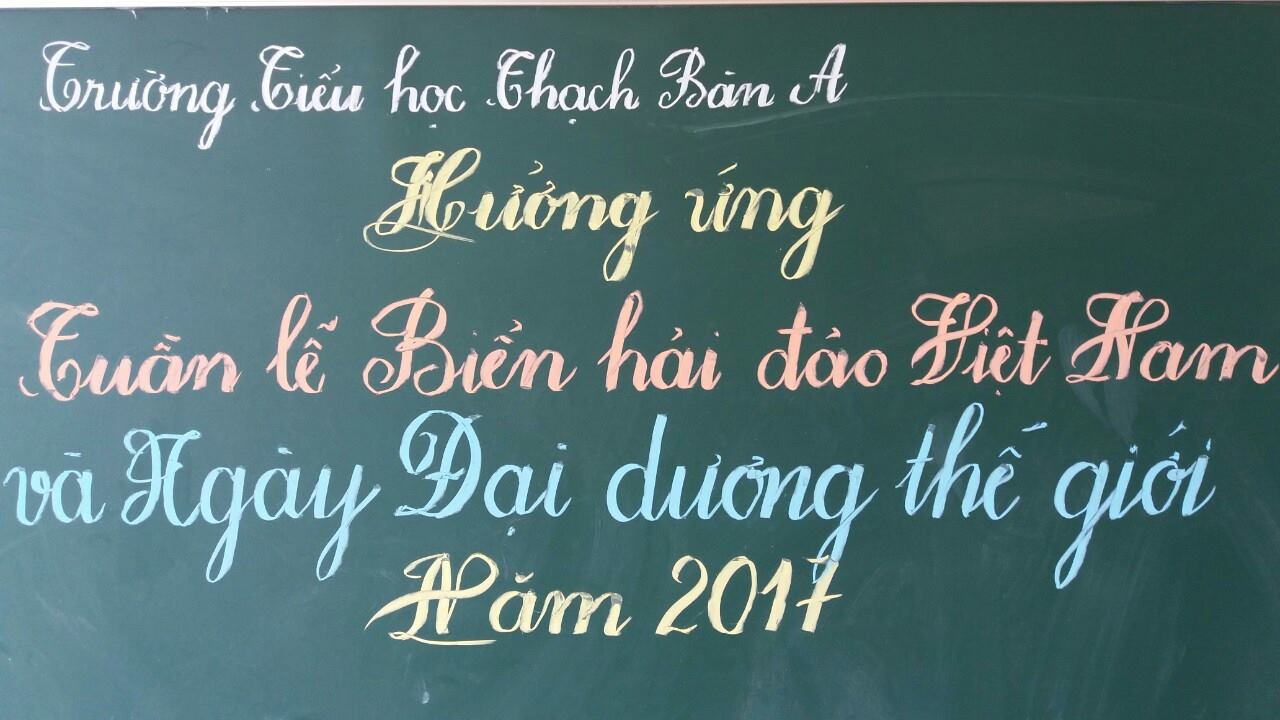 Trường Tiểu học Thạch Bàn A
Hưởng ứng
Tuần lễ Biển hải đảo Việt Nam
và Ngày Đại dương thế giới
Năm 2017